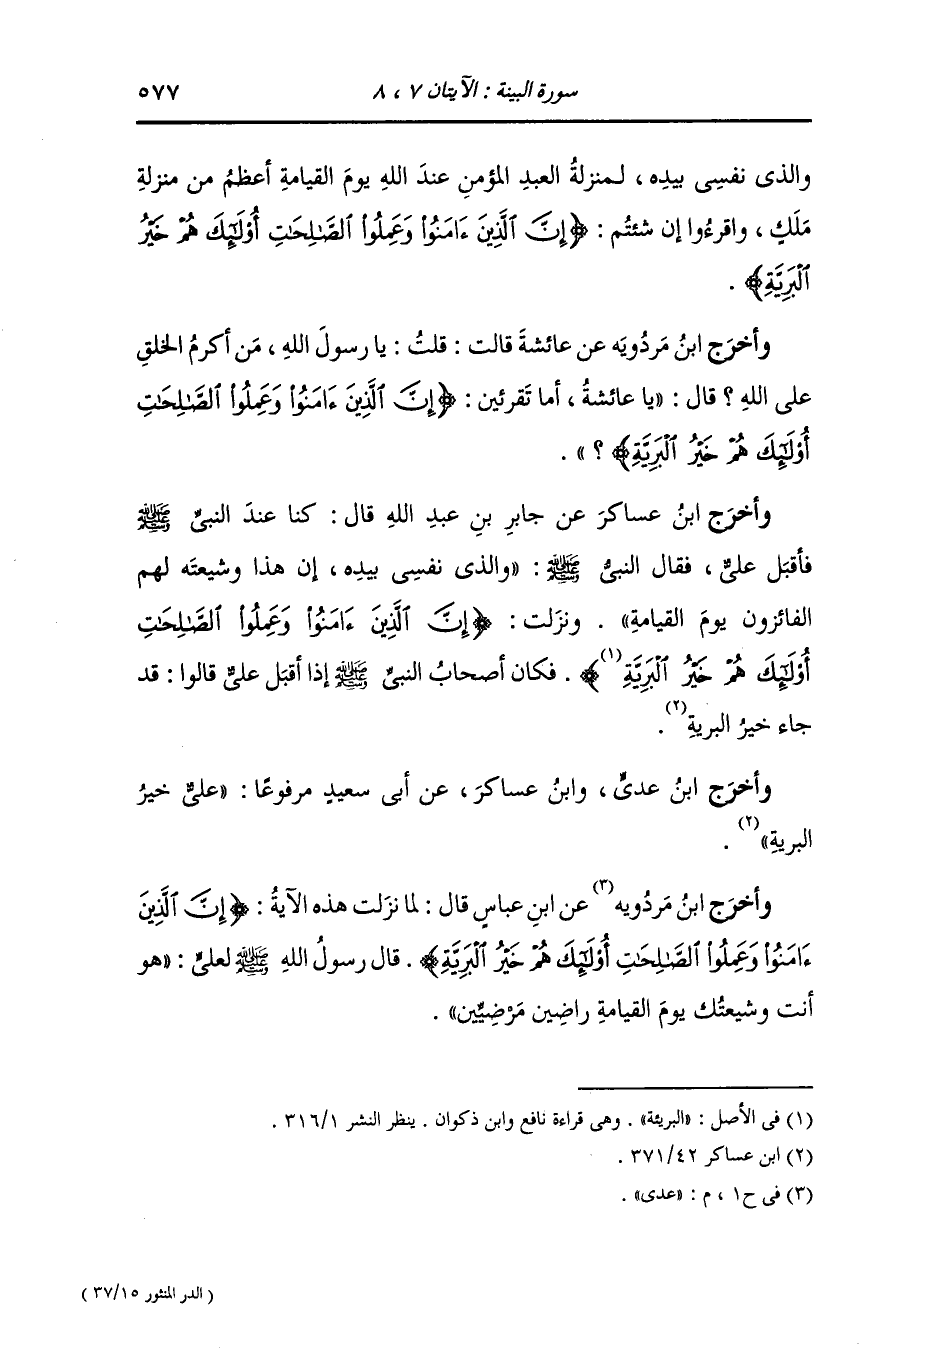 سورة البينة : الآيتان ٧ ، ٨ ٥٧٧
والذى نفسِى بيدِه ، لـمنزلةُ العبدِ المؤمنِ عندَ اللهِ يومَ القيامةِ أعظمُ من منزلةِ
مَلَكٍ ، واقرءُوا إن شئتُم : ﴿إِنَّ ٱلَّذِينَ ءَامَنُوا۟ وَعَمِلُوا۟ ٱلصَّـٰلِحَـٰتِ أُو۟لَـٰٓئِكَ هُمْ خَيْرُ
ٱلْبَرِيَّةِ﴾ .
وأخرَج ابنُ مَردُويَه عن عائشةَ قالت : قلتُ : يا رسولَ اللهِ ، مَن أكرمُ الخلقِ
على اللهِ ؟ قال : «يا عائشةُ ، أما تَقرئين : ﴿إِنَّ ٱلَّذِينَ ءَامَنُوا۟ وَعَمِلُوا۟ ٱلصَّـٰلِحَـٰتِ
أُو۟لَـٰٓئِكَ هُمْ خَيْرُ ٱلْبَرِيَّةِ﴾ ؟ » .
وأخرَج ابنُ عساكرَ عن جابرِ بنِ عبدِ اللهِ قال : كنا عندَ النبىِّ ﷺ
فأقبَل علىٌّ ، فقال النبىُّ ﷺ : «والذى نفسِى بيدِه ، إن هذا وشيعتَه لهم
الفائزون يومَ القيامةِ» . ونزَلت : ﴿إِنَّ ٱلَّذِينَ ءَامَنُوا۟ وَعَمِلُوا۟ ٱلصَّـٰلِحَـٰتِ
أُو۟لَـٰٓئِكَ هُمْ خَيْرُ ٱلْبَرِيَّةِ(١)﴾ . فكان أصحابُ النبىِّ ﷺ إذا أقبَل علىٌّ قالوا : قد
جاء خيرُ البريةِ(٢) .
وأخرَج ابنُ عدىٍّ ، وابنُ عساكرَ ، عن أبى سعيدٍ مرفوعًا : «علىٌّ خيرُ
البريةِ»(٢) .
وأخرَج ابنُ مَردُويه(٣) عن ابنِ عباسٍ قال : لما نزَلت هذه الآيةُ : ﴿إِنَّ ٱلَّذِينَ
ءَامَنُوا۟ وَعَمِلُوا۟ ٱلصَّـٰلِحَـٰتِ أُو۟لَـٰٓئِكَ هُمْ خَيْرُ ٱلْبَرِيَّةِ﴾ . قال رسولُ اللهِ ﷺ لعلىٍّ : «هو
أنت وشيعتُك يومَ القيامةِ راضِين مَرْضِيِّين» .
(١) فى الأصل : «البريئة» . وهى قراءة نافع وابن ذكوان . ينظر النشر ٣١٦/١ .
(٢) ابن عساكر ٣٧١/٤٢ .
(٣) فى ح١ ، م : «عدى» .
( الدر المنثور ٣٧/١٥ )